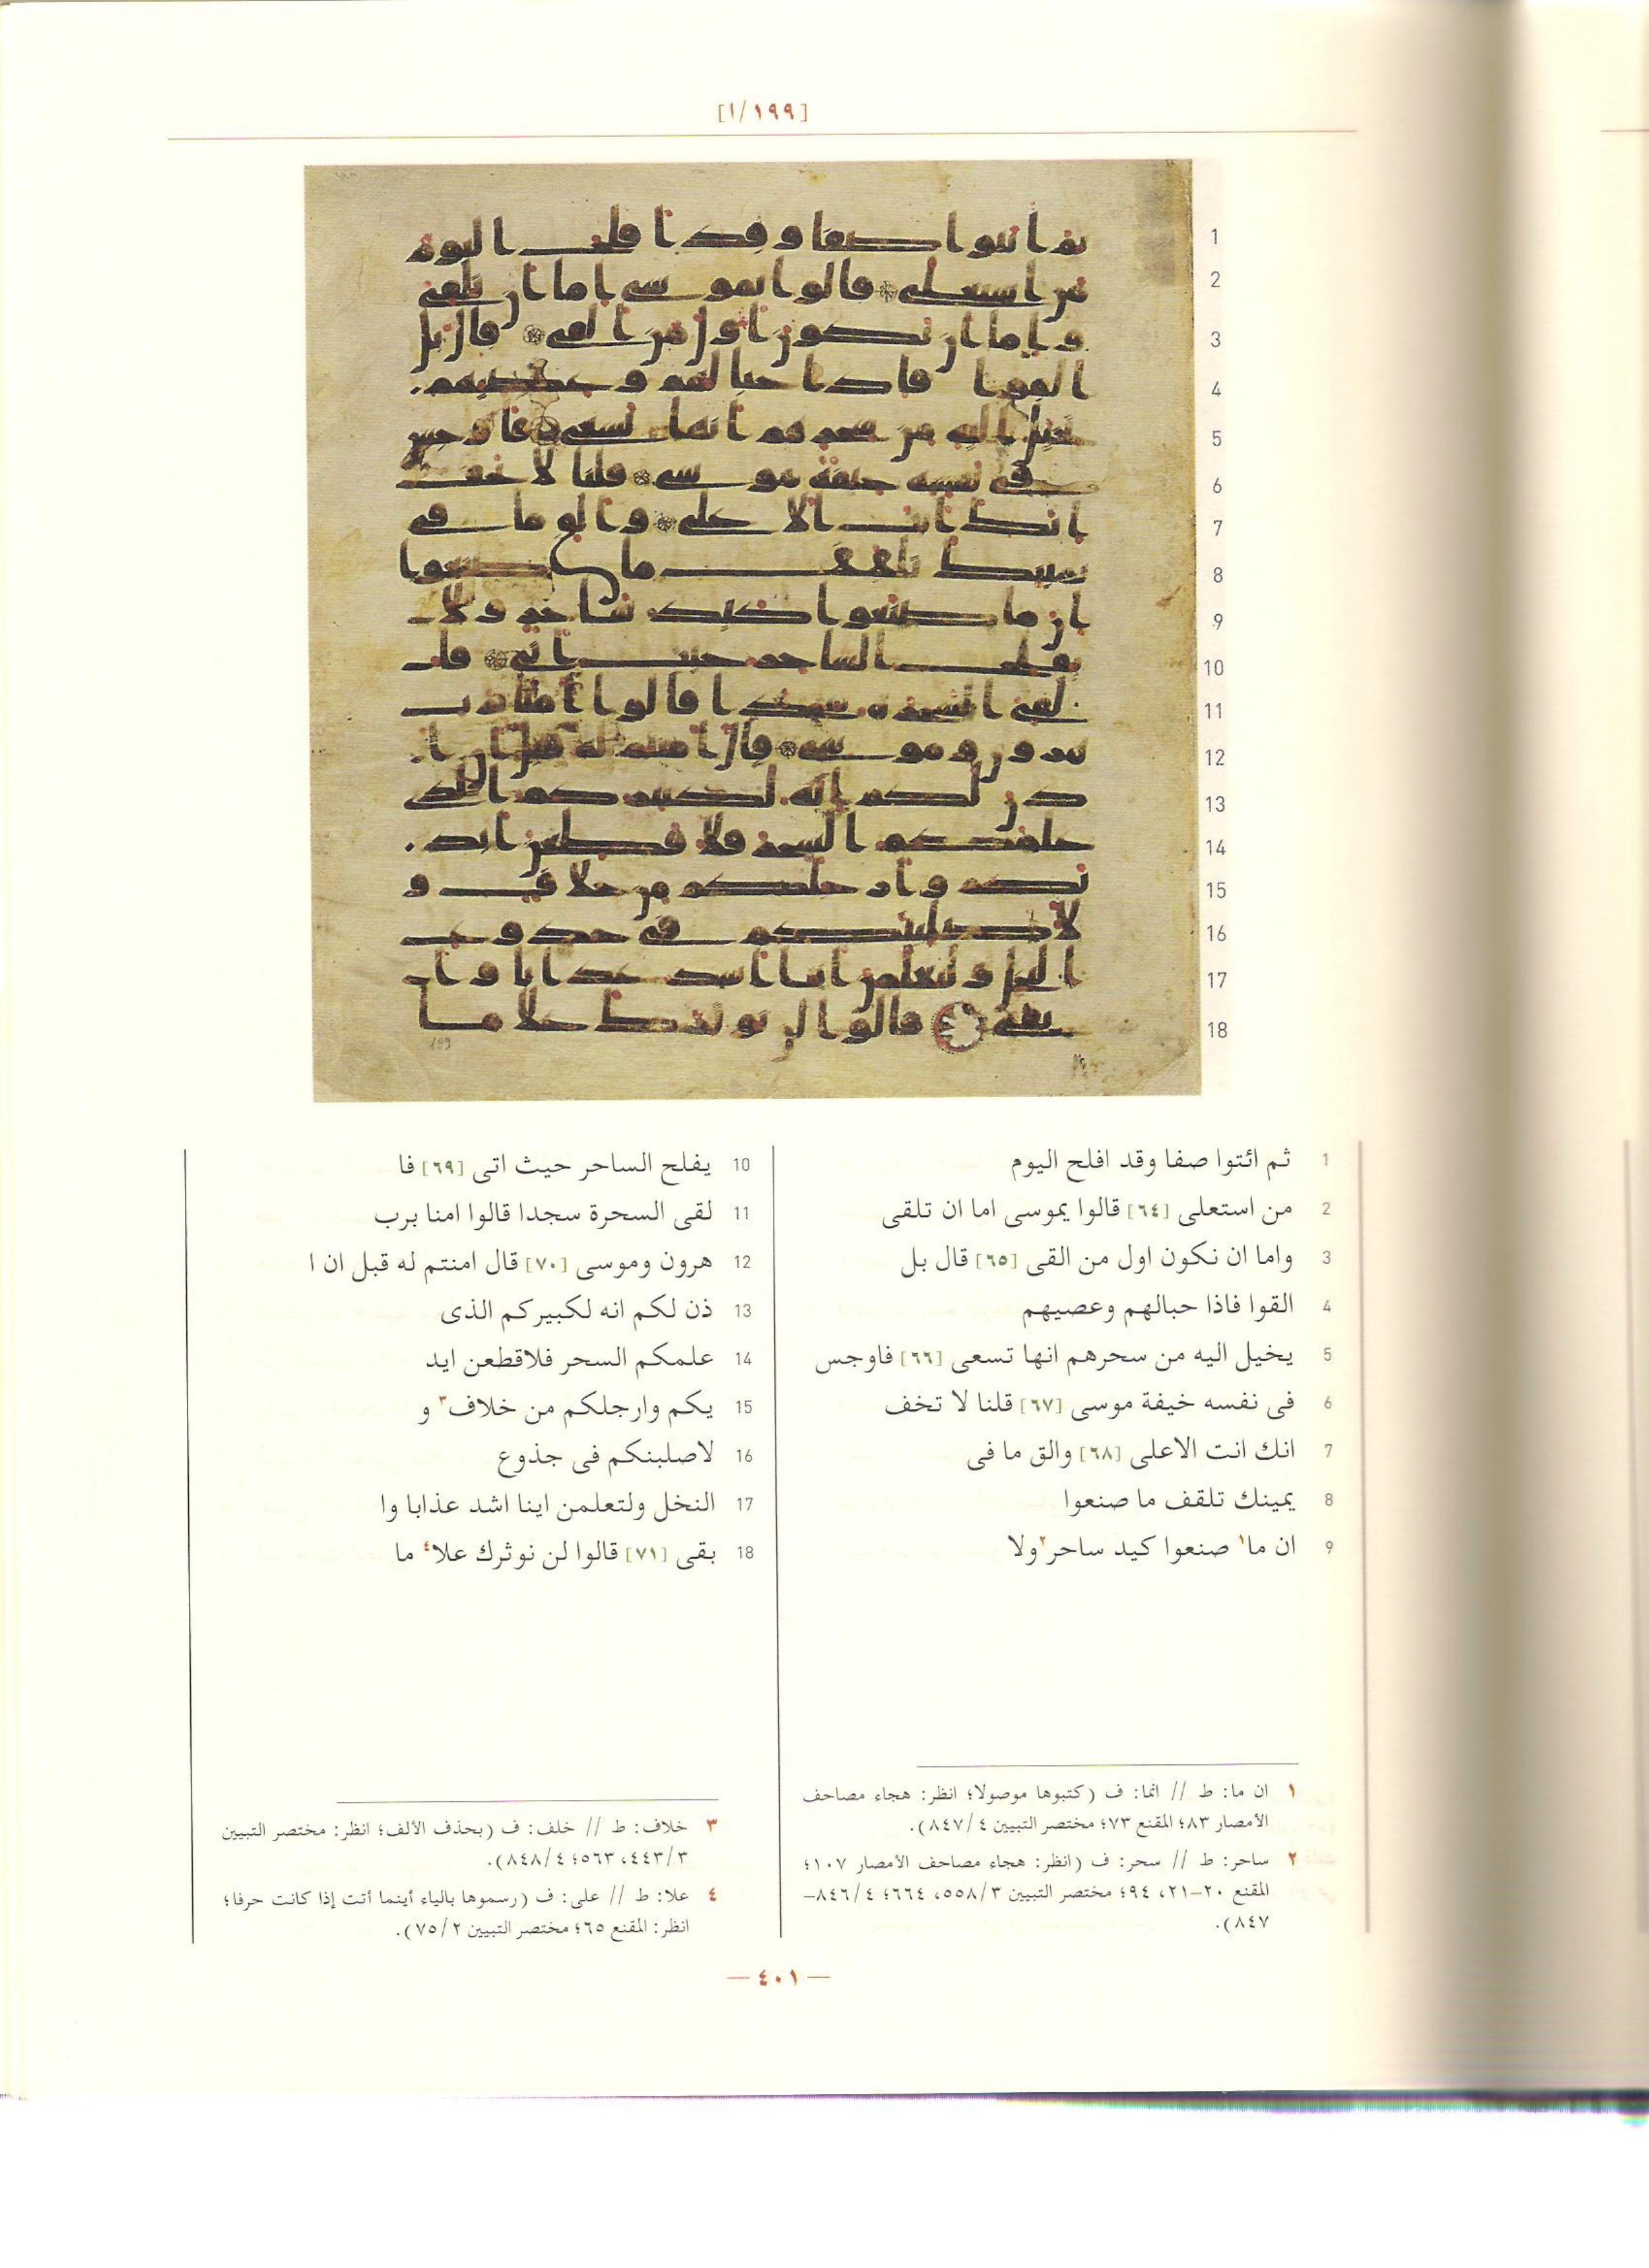 [١/١٩٩]
1 ثم ائتوا صفا وقد افلح اليوم
2 من استعلى [٦٤] قالوا يموسى اما ان تلقى
3 واما ان نكون اول من القى [٦٥] قال بل
4 القوا فاذا حبالهم وعصيهم
5 يخيل اليه من سحرهم انها تسعى [٦٦] فاوجس
6 فى نفسه خيفة موسى [٦٧] قلنا لا تخف
7 انك انت الاعلى [٦٨] والق ما فى
8 يمينك تلقف ما صنعوا
9 ان ما١ صنعوا كيد ساحر٢ ولا
10 يفلح الساحر حيث اتى [٦٩] فا
11 لقى السحرة سجدا قالوا امنا برب
12 هرون وموسى [٧٠] قال امنتم له قبل ان ا
13 ذن لكم انه لكبيركم الذى
14 علمكم السحر فلاقطعن ايد
15 يكم وارجلكم من خلاف٣ و
16 لاصلبنكم فى جذوع
17 النخل ولتعلمن اينا اشد عذابا وا
18 بقى [٧١] قالوا لن نوثرك علا٤ ما
١ ان ما: ط // انما: ف (كتبوها موصولا؛ انظر: هجاء مصاحف
الأمصار ٨٣؛ المقنع ٧٣؛ مختصر التبيين ٨٤٧/٤).
٢ ساحر: ط // سحر: ف (انظر: هجاء مصاحف الأمصار ١٠٧؛
المقنع ٢٠–٢١، ٩٤؛ مختصر التبيين ٥٥٨/٣، ٦٦٤؛ ٨٤٦/٤–
٨٤٧).
٣ خلاف: ط // خلف: ف (بحذف الألف؛ انظر: مختصر التبيين
٤٤٣/٣، ٥٦٣؛ ٨٤٨/٤).
٤ علا: ط // على: ف (رسموها بالياء أينما أتت إذا كانت حرفا؛
انظر: المقنع ٦٥؛ مختصر التبيين ٧٥/٢).
— ٤٠١ —